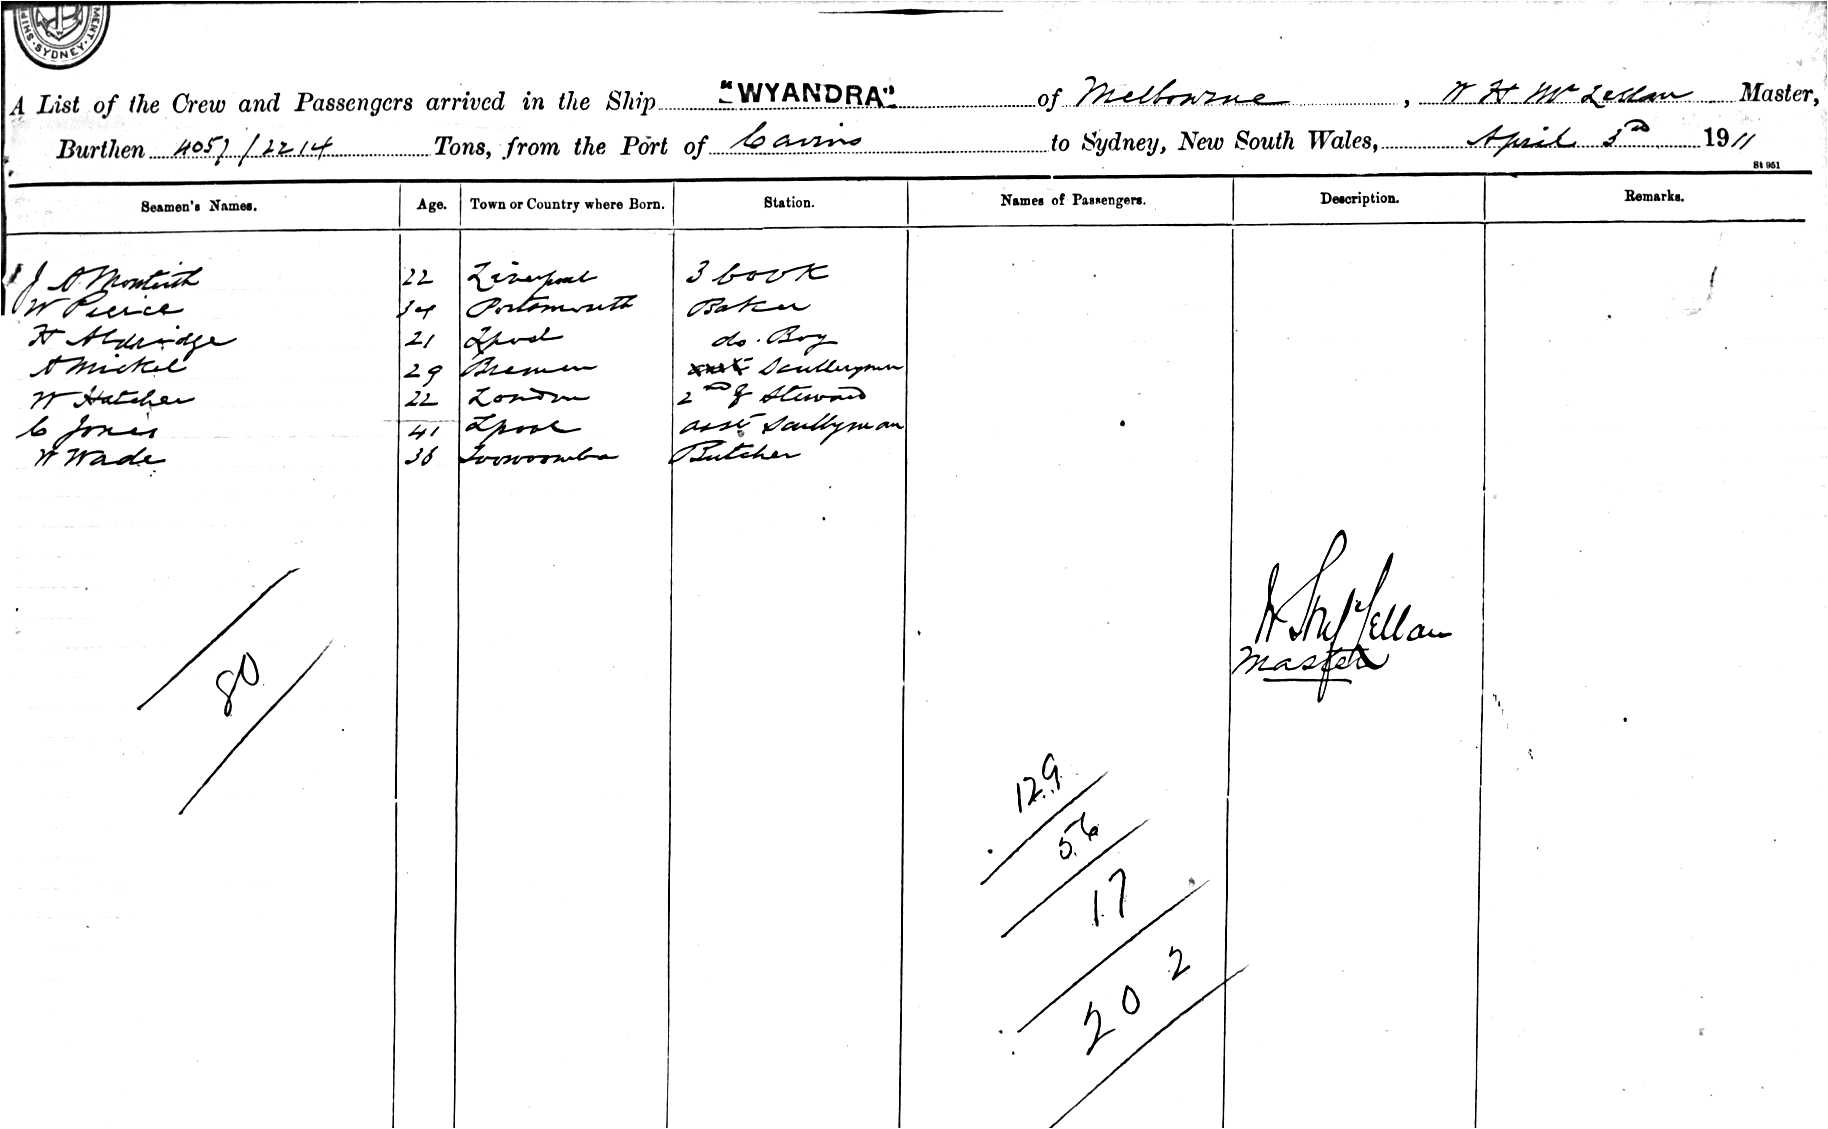 SHIP MENT · SYDNEY ·
A List of the Crew and Passengers arrived in the Ship "WYANDRA" of Melbourne, W H McLellan Master,
Burthen 4057/2214 Tons, from the Port of Cairns to Sydney, New South Wales, April 3rd 1911
St 951
Seamen's Names. Age. Town or Country where Born. Station. Names of Passengers. Description. Remarks.
J A Monteith 22 Liverpool 3 Cook
W Pierce 34 Portsmouth Baker
H Aldridge 21 Lpool do. Boy
A Mickel 29 Bremen Sculleryman
W Hatcher 22 London 2nd Steward
C Jones 41 Lpool asst Scullyman
W Wade 36 Toowoomba Butcher
W H McLellan
Master
80
129
56
17
202